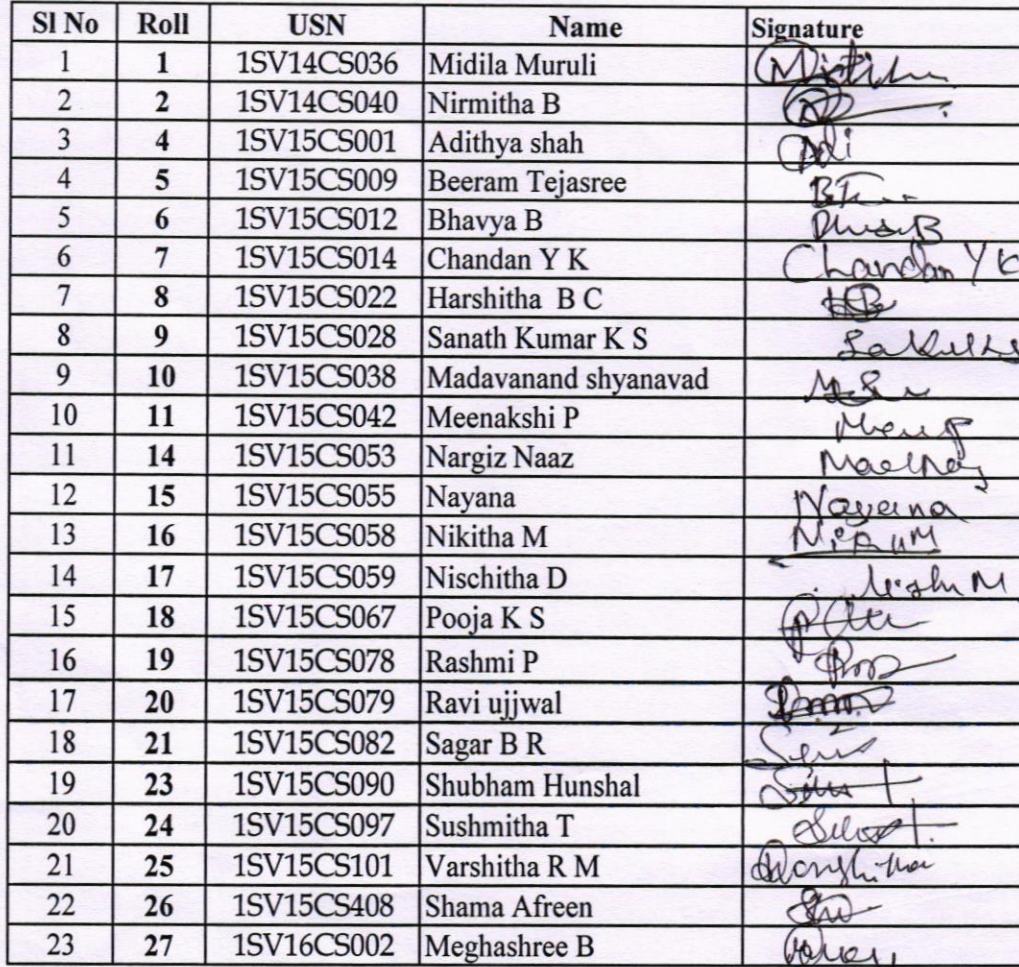 Sl No Roll USN Name Signature
1 1 1SV14CS036 Midila Muruli
2 2 1SV14CS040 Nirmitha B
3 4 1SV15CS001 Adithya shah Adi
4 5 1SV15CS009 Beeram Tejasree
5 6 1SV15CS012 Bhavya B
6 7 1SV15CS014 Chandan Y K Chandan Y K
7 8 1SV15CS022 Harshitha B C
8 9 1SV15CS028 Sanath Kumar K S
9 10 1SV15CS038 Madavanand shyanavad
10 11 1SV15CS042 Meenakshi P
11 14 1SV15CS053 Nargiz Naaz
12 15 1SV15CS055 Nayana Nayana
13 16 1SV15CS058 Nikitha M
14 17 1SV15CS059 Nischitha D
15 18 1SV15CS067 Pooja K S
16 19 1SV15CS078 Rashmi P
17 20 1SV15CS079 Ravi ujjwal
18 21 1SV15CS082 Sagar B R
19 23 1SV15CS090 Shubham Hunshal
20 24 1SV15CS097 Sushmitha T
21 25 1SV15CS101 Varshitha R M
22 26 1SV15CS408 Shama Afreen
23 27 1SV16CS002 Meghashree B